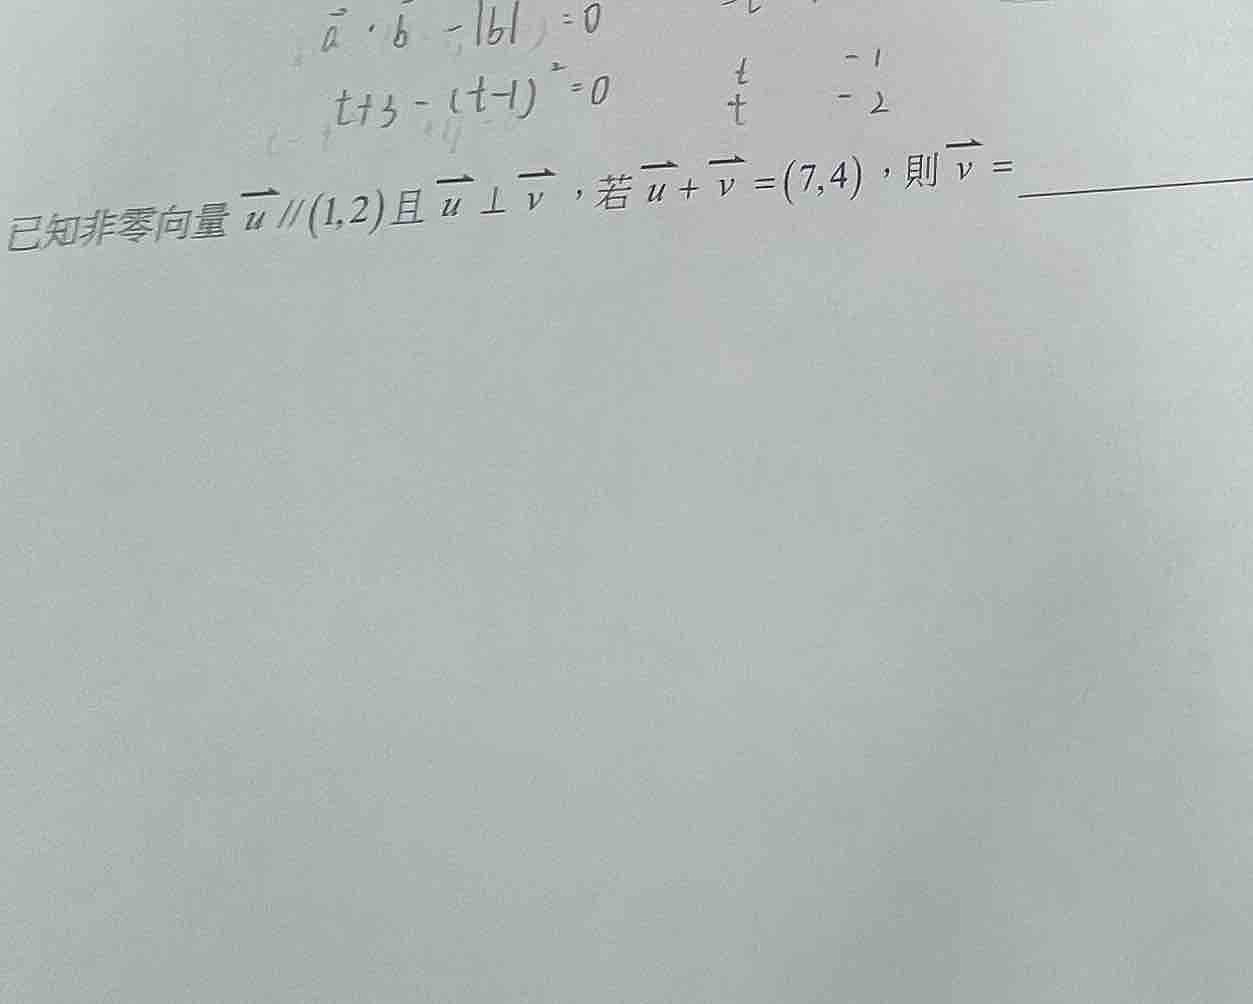 a⃗ · b⃗ - |b| = 0
t+3 - (t-1)² = 0
t -1
t -2
已知非零向量 u⃗ // (1,2) 且 u⃗ ⊥ v⃗ ，若 u⃗ + v⃗ = (7,4) ，則 v⃗ = ________